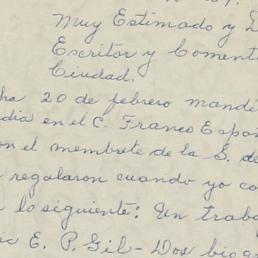 Muy Estimado y
Escritor y Coment
Ciudad.
ha 20 de febrero mandé
dia en el C. Franco Españ
on el membrete de la S. de
regalaron cuando yo co
lo siguiente: Un traba
E. P. Gil - Dos biog